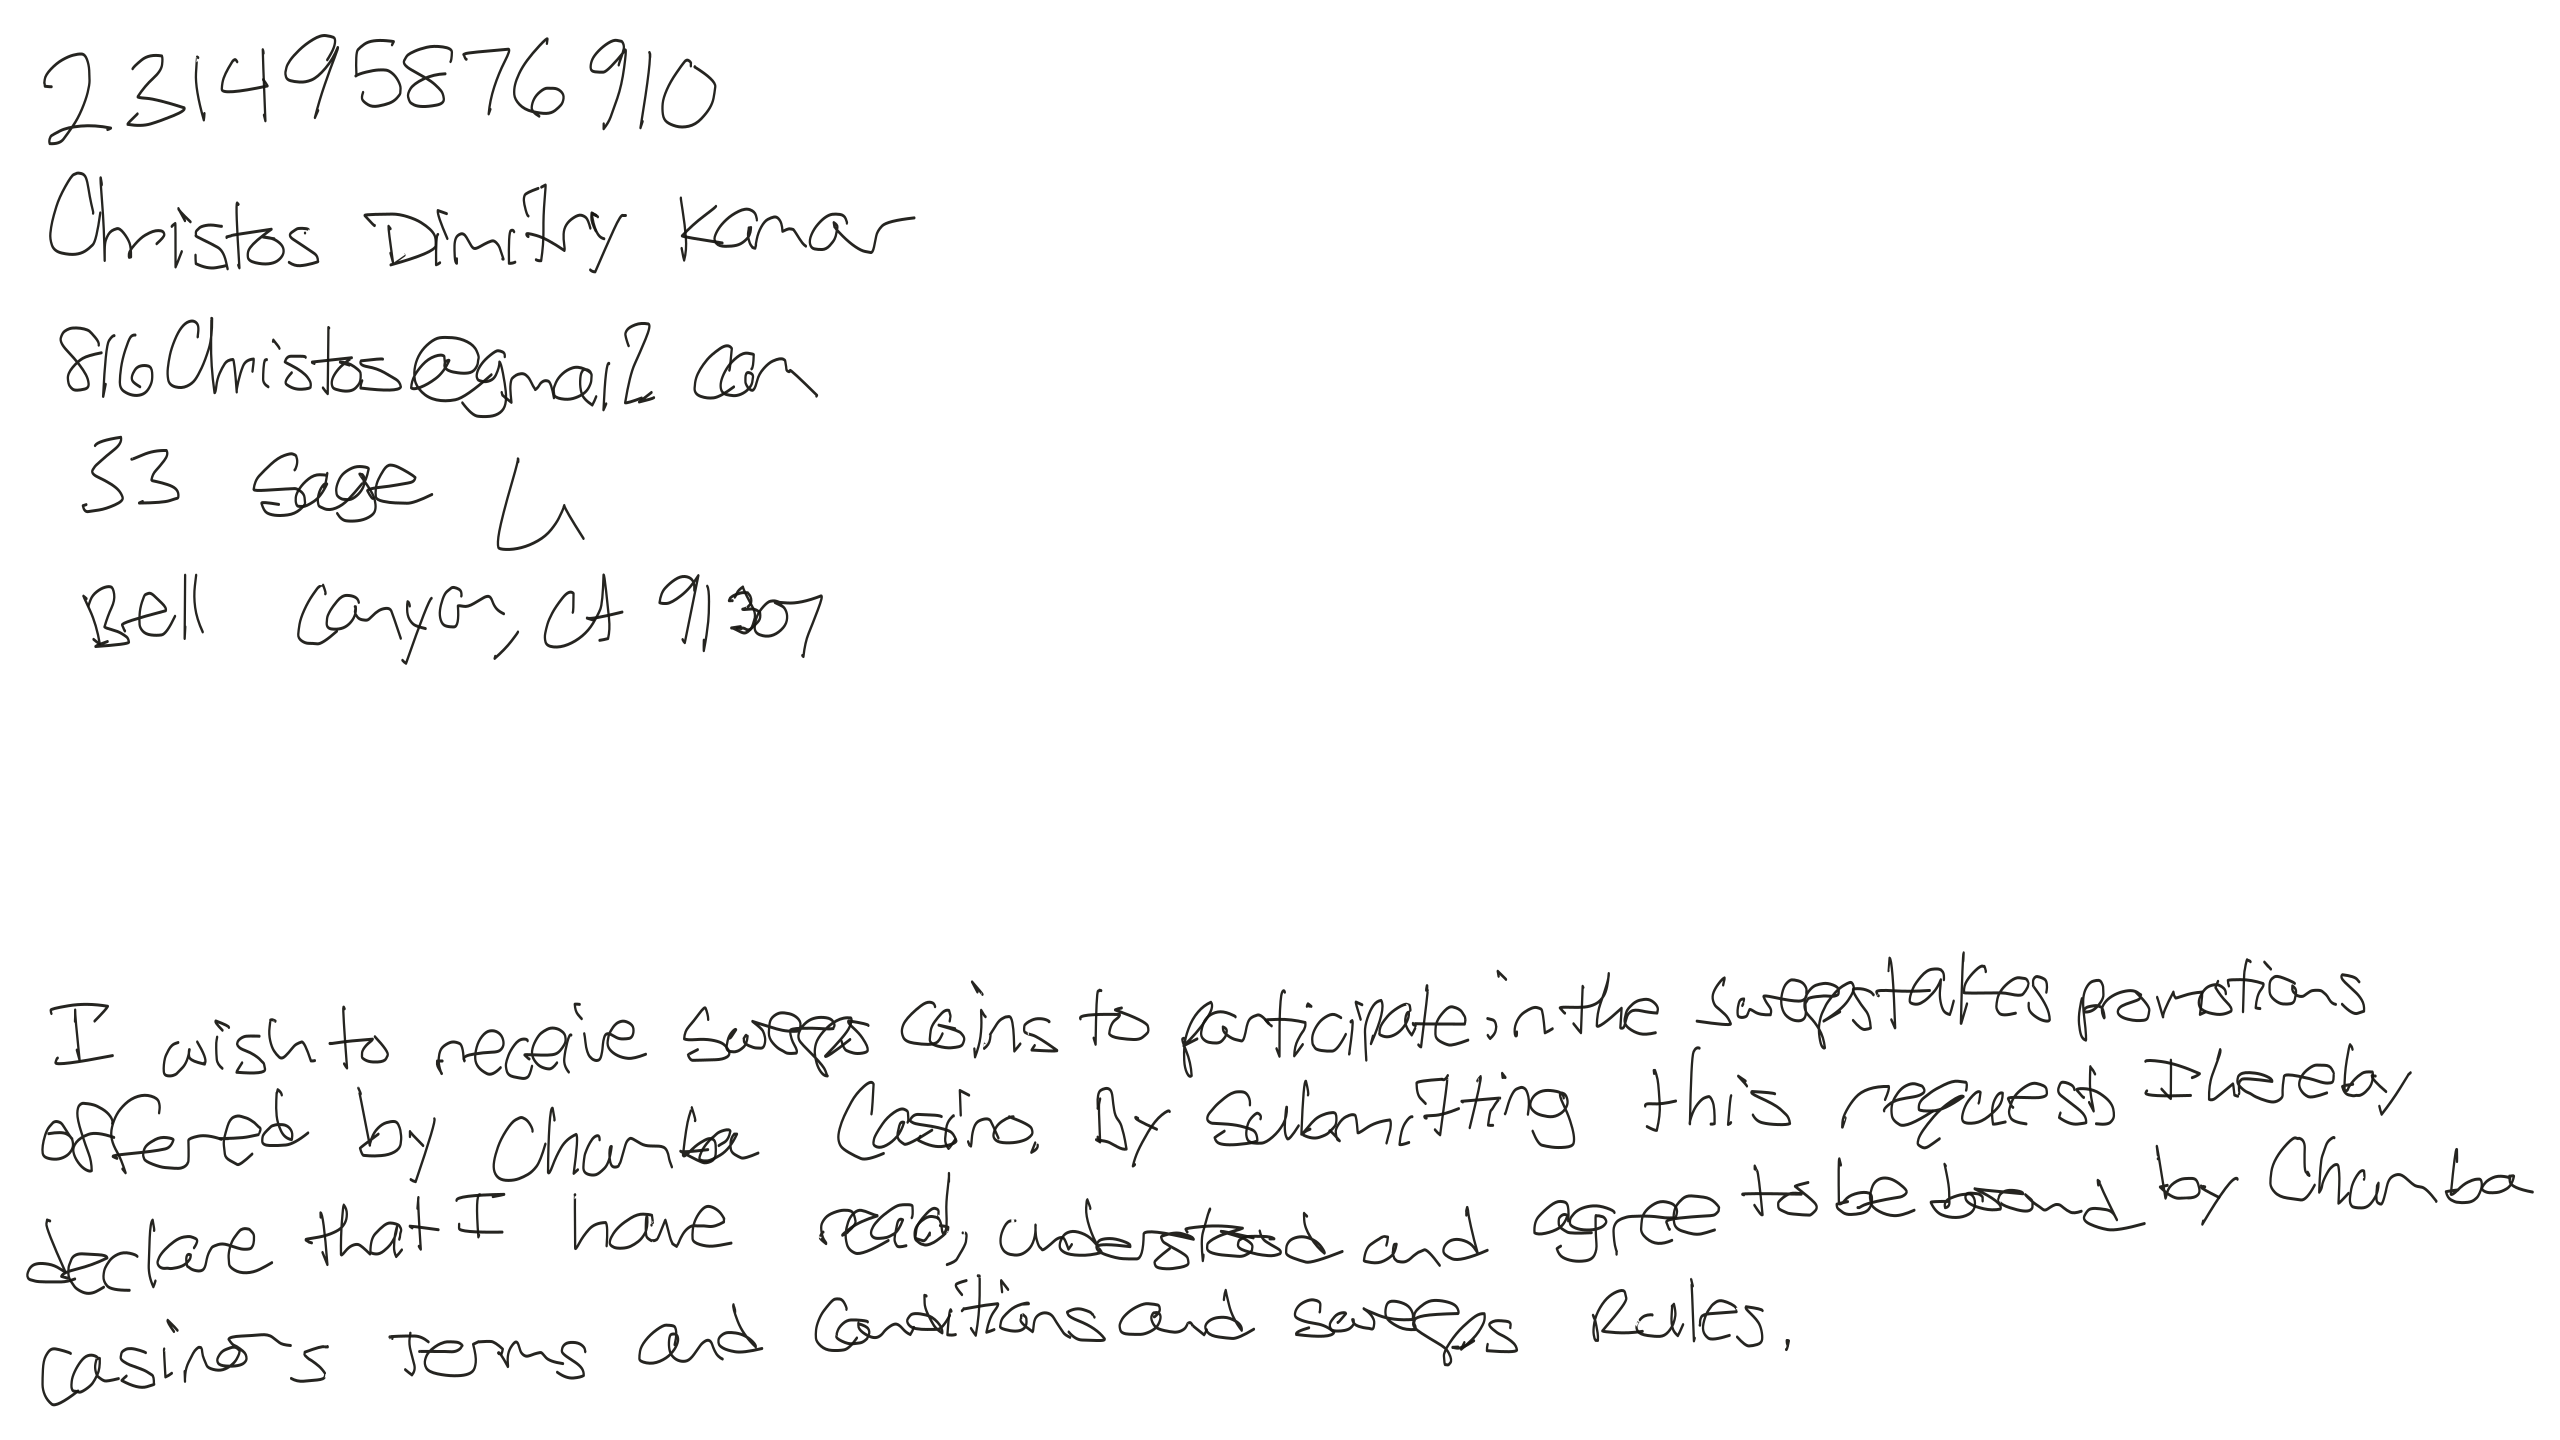 231495876910
Christos Dimitry Kanar
816Christos@gmail com
33 Sage Ln
Bell Canyon, CA 91307
I wish to receive sweeps coins to participate in the sweepstakes promotions
offered by Chumba Casino. By submitting this request I hereby
declare that I have read, understood and agree to be bound by Chumba
Casino's Terms and Conditions and sweeps Rules.